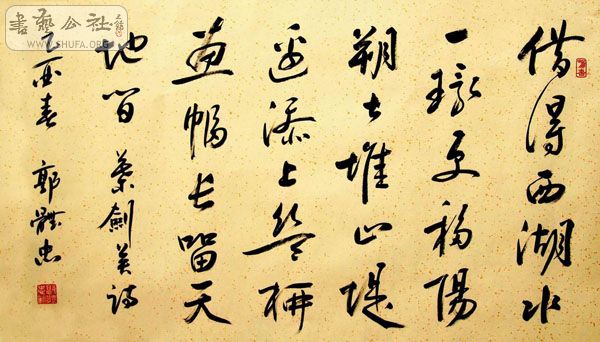 書藝公社
WWW.SHUFA.ORG
借得西湖水
一環更移陽
朔七堆山堤
邊添上絲絲柳
畫幅長留天
地間 葉劍英詩
酉春 郭體忠